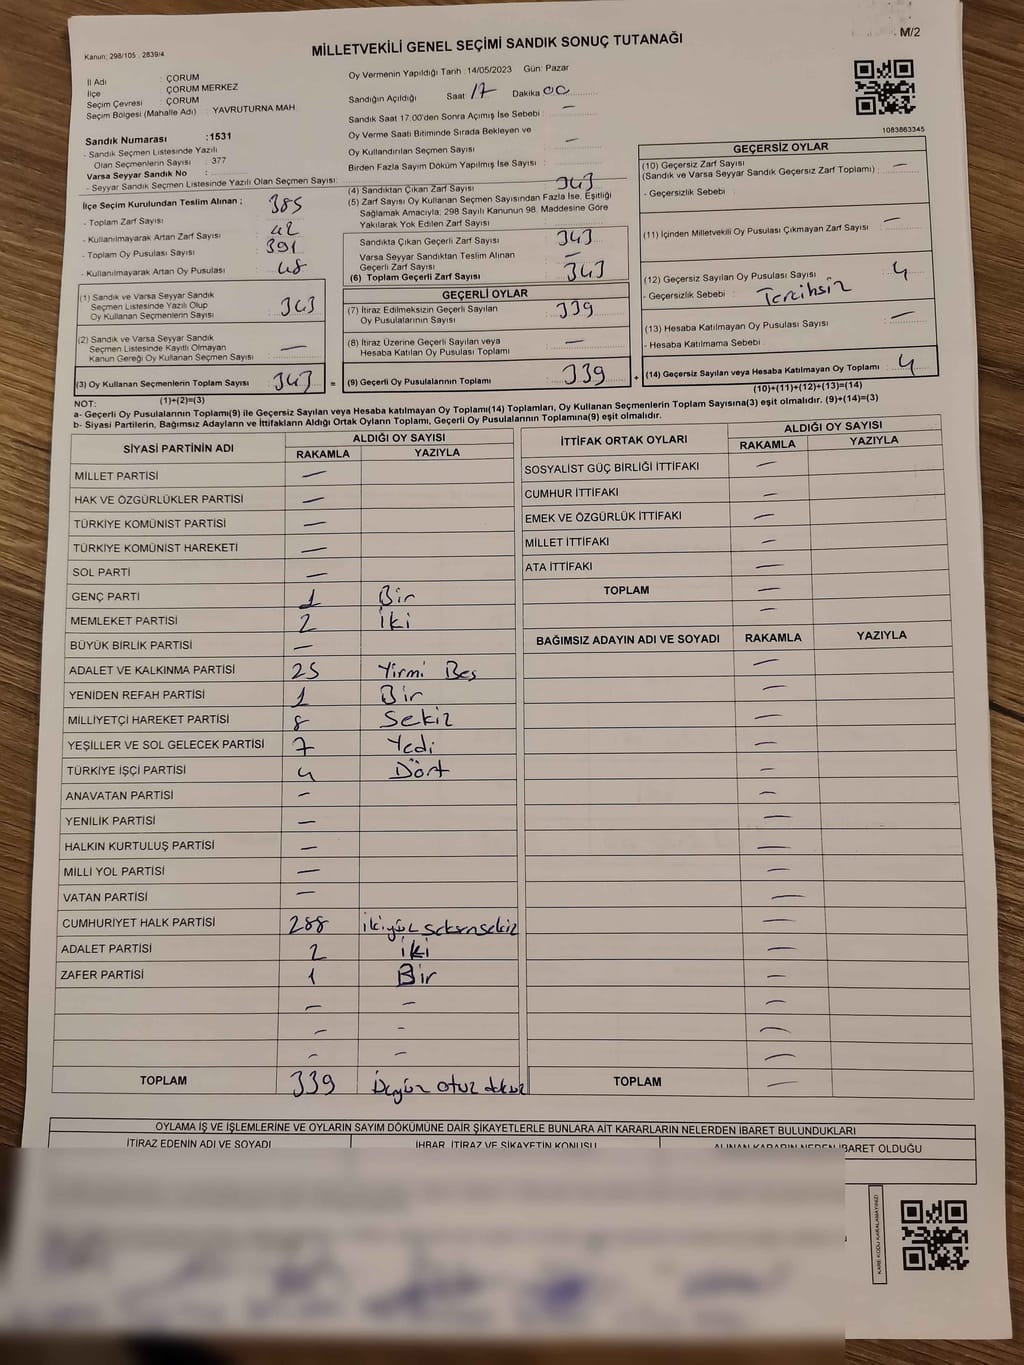 M/2
Kanun; 298/105 : 2839/4
MİLLETVEKİLİ GENEL SEÇİMİ SANDIK SONUÇ TUTANAĞI
İl Adı : ÇORUM
İlçe : ÇORUM MERKEZ
Seçim Çevresi : ÇORUM
Seçim Bölgesi (Mahalle Adı) : YAVRUTURNA MAH
Sandık Numarası :1531
- Sandık Seçmen Listesinde Yazılı
Olan Seçmenlerin Sayısı : 377
Varsa Seyyar Sandık No :
- Seyyar Sandık Seçmen Listesinde Yazılı Olan Seçmen Sayısı:
İlçe Seçim Kurulundan Teslim Alınan ;
- Toplam Zarf Sayısı : 385
- Kullanılmayarak Artan Zarf Sayısı : 42
- Toplam Oy Pusulası Sayısı : 391
- Kullanılmayarak Artan Oy Pusulası : 48
(1) Sandık ve Varsa Seyyar Sandık
Seçmen Listesinde Yazılı Olup
Oy Kullanan Seçmenlerin Sayısı : 343
(2) Sandık ve Varsa Seyyar Sandık
Seçmen Listesinde Kayıtlı Olmayan
Kanun Gereği Oy Kullanan Seçmen Sayısı : —
(3) Oy Kullanan Seçmenlerin Toplam Sayısı : 343 =
(1)+(2)=(3)
Oy Vermenin Yapıldığı Tarih :14/05/2023 Gün: Pazar
Sandığın Açıldığı Saat 17 Dakika 00
Sandık Saat 17:00'den Sonra Açılmış İse Sebebi : —
Oy Verme Saati Bitiminde Sırada Bekleyen ve
Oy Kullandırılan Seçmen Sayısı : —
Birden Fazla Sayım Döküm Yapılmış İse Sayısı :
(4) Sandıktan Çıkan Zarf Sayısı : 343
(5) Zarf Sayısı Oy Kullanan Seçmen Sayısından Fazla İse, Eşitliği
Sağlamak Amacıyla, 298 Sayılı Kanunun 98. Maddesine Göre
Yakılarak Yok Edilen Zarf Sayısı :
Sandıkta Çıkan Geçerli Zarf Sayısı : 343
Varsa Seyyar Sandıktan Teslim Alınan
Geçerli Zarf Sayısı : —
(6) Toplam Geçerli Zarf Sayısı : 343
GEÇERLİ OYLAR
(7) İtiraz Edilmeksizin Geçerli Sayılan
Oy Pusulalarının Sayısı : 339
(8) İtiraz Üzerine Geçerli Sayılan veya
Hesaba Katılan Oy Pusulası Toplamı : —
(9) Geçerli Oy Pusulalarının Toplamı : 339 +
1083863345
GEÇERSİZ OYLAR
(10) Geçersiz Zarf Sayısı
(Sandık ve Varsa Seyyar Sandık Geçersiz Zarf Toplamı) : —
- Geçersizlik Sebebi :
(11) İçinden Milletvekili Oy Pusulası Çıkmayan Zarf Sayısı : —
(12) Geçersiz Sayılan Oy Pusulası Sayısı : 4
- Geçersizlik Sebebi : Tercihsiz
(13) Hesaba Katılmayan Oy Pusulası Sayısı : —
- Hesaba Katılmama Sebebi :
(14) Geçersiz Sayılan veya Hesaba Katılmayan Oy Toplamı : 4
(10)+(11)+(12)+(13)=(14)
NOT:
a- Geçerli Oy Pusulalarının Toplamı(9) ile Geçersiz Sayılan veya Hesaba katılmayan Oy Toplamı(14) Toplamları, Oy Kullanan Seçmenlerin Toplam Sayısına(3) eşit olmalıdır. (9)+(14)=(3)
b- Siyasi Partilerin, Bağımsız Adayların ve İttifakların Aldığı Ortak Oyların Toplamı, Geçerli Oy Pusulalarının Toplamına(9) eşit olmalıdır.
SİYASİ PARTİNİN ADI ALDIĞI OY SAYISI
RAKAMLA YAZIYLA
MİLLET PARTİSİ —
HAK VE ÖZGÜRLÜKLER PARTİSİ —
TÜRKİYE KOMÜNİST PARTİSİ —
TÜRKİYE KOMÜNİST HAREKETİ —
SOL PARTİ —
GENÇ PARTİ 1 Bir
MEMLEKET PARTİSİ 2 İki
BÜYÜK BİRLİK PARTİSİ —
ADALET VE KALKINMA PARTİSİ 25 Yirmi Beş
YENİDEN REFAH PARTİSİ 1 Bir
MİLLİYETÇİ HAREKET PARTİSİ 8 Sekiz
YEŞİLLER VE SOL GELECEK PARTİSİ 7 Yedi
TÜRKİYE İŞÇİ PARTİSİ 4 Dört
ANAVATAN PARTİSİ —
YENİLİK PARTİSİ —
HALKIN KURTULUŞ PARTİSİ —
MİLLİ YOL PARTİSİ —
VATAN PARTİSİ —
CUMHURİYET HALK PARTİSİ 288 ikiyüz seksensekiz
ADALET PARTİSİ 2 iki
ZAFER PARTİSİ 1 Bir
— —
— —
— —
TOPLAM 339 üçyüz otuz dokuz
İTTİFAK ORTAK OYLARI ALDIĞI OY SAYISI
RAKAMLA YAZIYLA
SOSYALİST GÜÇ BİRLİĞİ İTTİFAKI —
CUMHUR İTTİFAKI —
EMEK VE ÖZGÜRLÜK İTTİFAKI —
MİLLET İTTİFAKI —
ATA İTTİFAKI —
TOPLAM —
—
BAĞIMSIZ ADAYIN ADI VE SOYADI RAKAMLA YAZIYLA
—
—
—
—
—
—
—
—
—
—
—
—
—
—
—
—
—
TOPLAM —
OYLAMA İŞ VE İŞLEMLERİNE VE OYLARIN SAYIM DÖKÜMÜNE DAİR ŞİKAYETLERLE BUNLARA AİT KARARLARIN NELERDEN İBARET BULUNDUKLARI
İTİRAZ EDENİN ADI VE SOYADI İHBAR, İTİRAZ VE ŞİKAYETİN KONUSU ALINAN KARARIN NEDEN İBARET OLDUĞU
KARE KODU KARALAMAYINIZ!